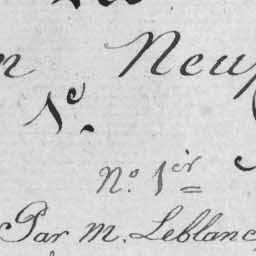 n Neuf
1e.
No. 1er
Par M. Leblanc